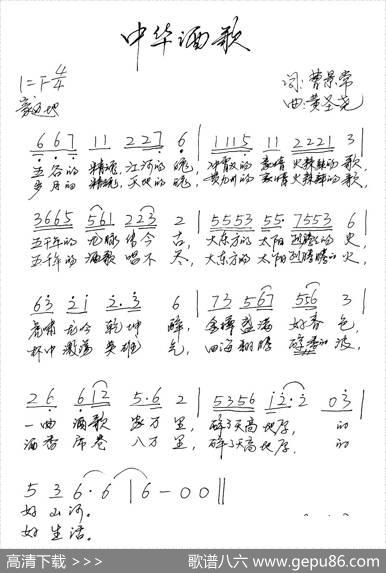 中华酒歌
1=F 4/4
词:曹景常
豪迈地
曲:黄圣尧
6 6 7 1 1 2 2 7 6 | 1 1 1 5 1 1 2 2 2 1 3 |
五谷的 精魂,江河的 魄, 冲霄汉的 豪情 火辣辣的 歌,
岁月的 精魂,天地的 魄, 豪情 火辣辣的 歌,
3 6 6 5 5 6 1 2 2 3 2 | 5 5 5 3 5 5· 7 5 5 3 6 |
五千年的 龙脉 传今 古, 大东方的 太阳 火,
五千年的 酒歌 唱不 大东方的 太阳 火,
6 3 2 1 2·3 6 | 7 3 5 6 7 5 5 6 3 |
虎啸 龙吟 乾坤 醉, 金樽 盛满 好春 色,
杯中 激荡 英雄 气, 四海 翻腾 醇香的 波,
2 6 6 1 2 5·6 2 | 5 3 5 6 1 2·2 0 3 |
一曲 酒歌 万 里, 醉了天高 地厚, 的
酒香 席卷 八万 里, 醉了天高 地厚, 的
5 3 6·6 | 6 - 0 0 ||
好 山 河。
好 生 活。
高清下载 >>>
歌谱八六 www.gepu86.com